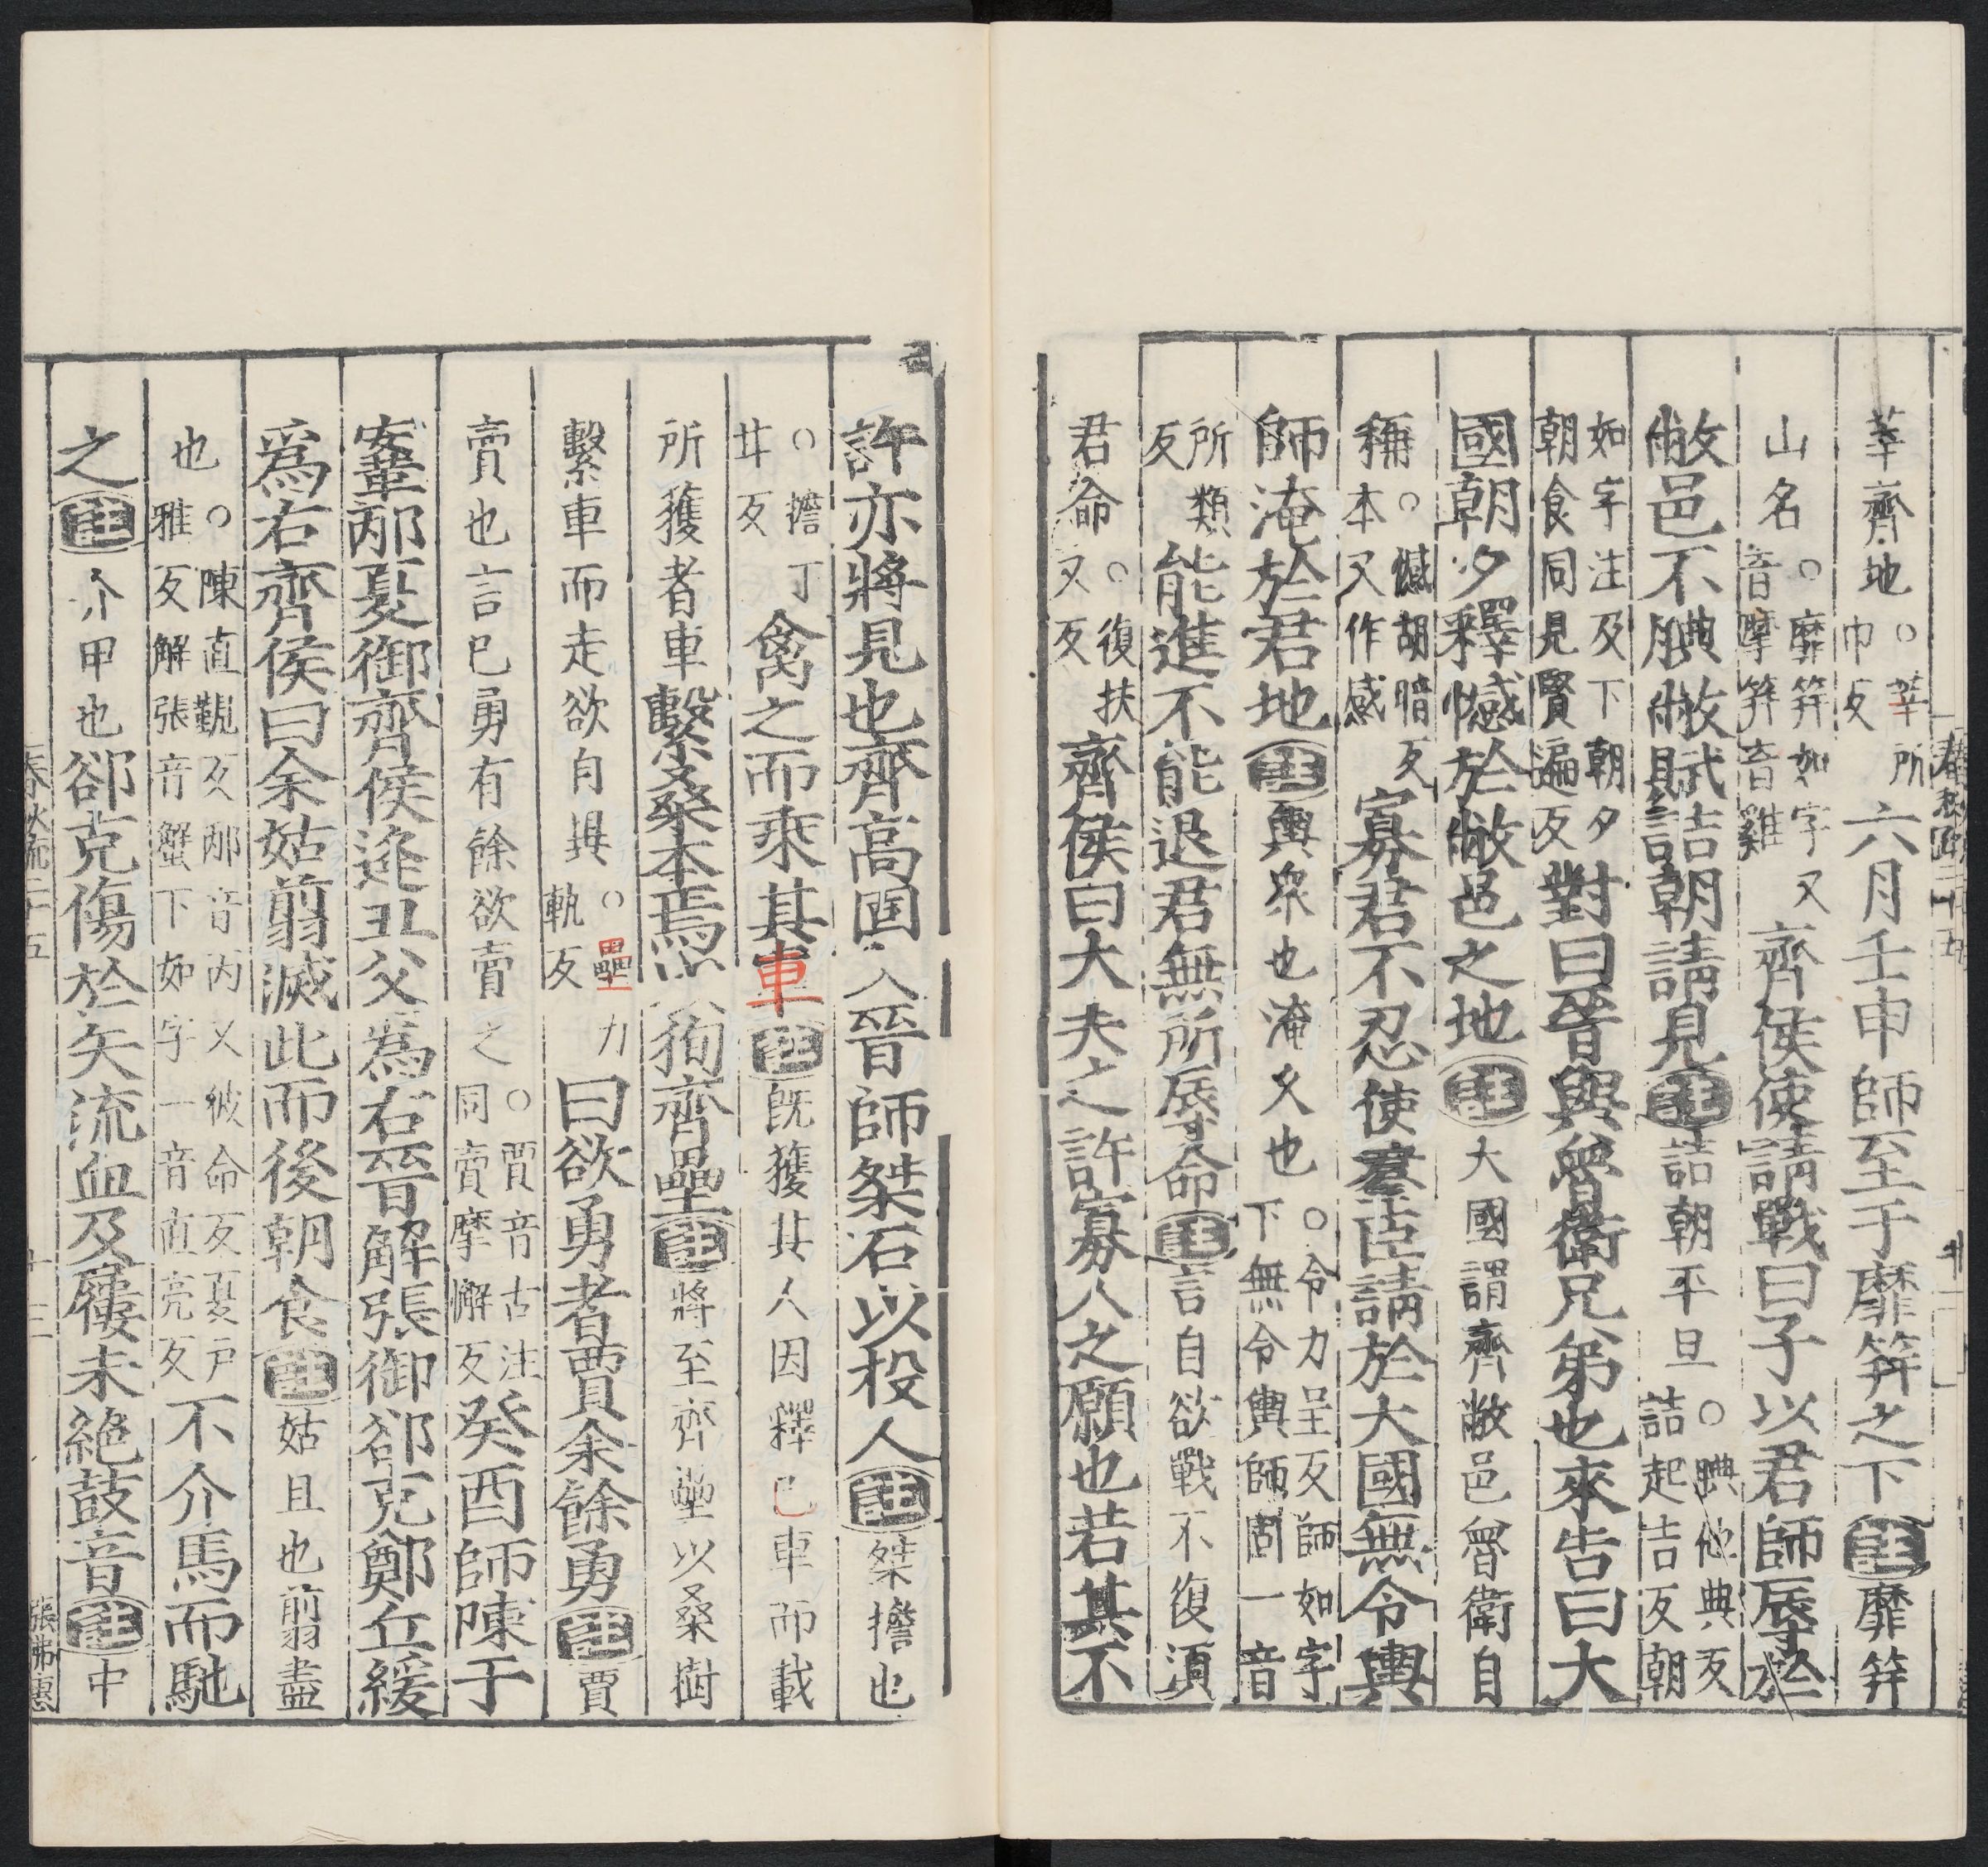 莘齊地○莘所巾反六月壬申師至于靡笄之下註靡笄
山名○靡笄如字又音摩笄音雞齊侯使請戰曰子以君師辱於
敝邑不腆敝賦詰朝請見註詰朝平旦○腆他典反詰起吉反朝
如字注及下朝夕朝食同見賢遍反對曰晉與魯衛兄弟也來告曰大
國朝夕釋憾於敝邑之地註大國謂齊敝邑魯衛自
稱○憾胡暗反本又作感寡君不忍使羣臣請於大國無令輿
師淹於君地註輿衆也淹久也○令力呈反師如字下無令輿師固一音
所類反能進不能退君無所辱命註言自欲戰不復須
君命○復扶又反齊侯曰大夫之許寡人之願也若其不
許亦將見也齊高固入晉師桀石以投人註桀擔也
○擔丁甘反禽之而乘其車註旣獲其人因釋己車而載
所獲者車繫桑本焉以徇齊壘註將至齊壘以桑樹
繫車而走欲自異○壘力軌反曰欲勇者賈余餘勇註賈
賣也言已勇有餘欲賣之○賈音古注同賣摩懈反癸酉師陳于
鞌邴夏御齊侯逄丑父爲右晉解張御郤克鄭丘緩
爲右齊侯曰余姑翦滅此而後朝食註姑且也翦盡
也○陳直覲反邴音丙又彼命反夏戶雅反解張音蟹下如字一音直亮反不介馬而馳
之註介甲也郤克傷於矢流血及屨未絕鼓音註中
春秋疏二十五
十三
張佛惠